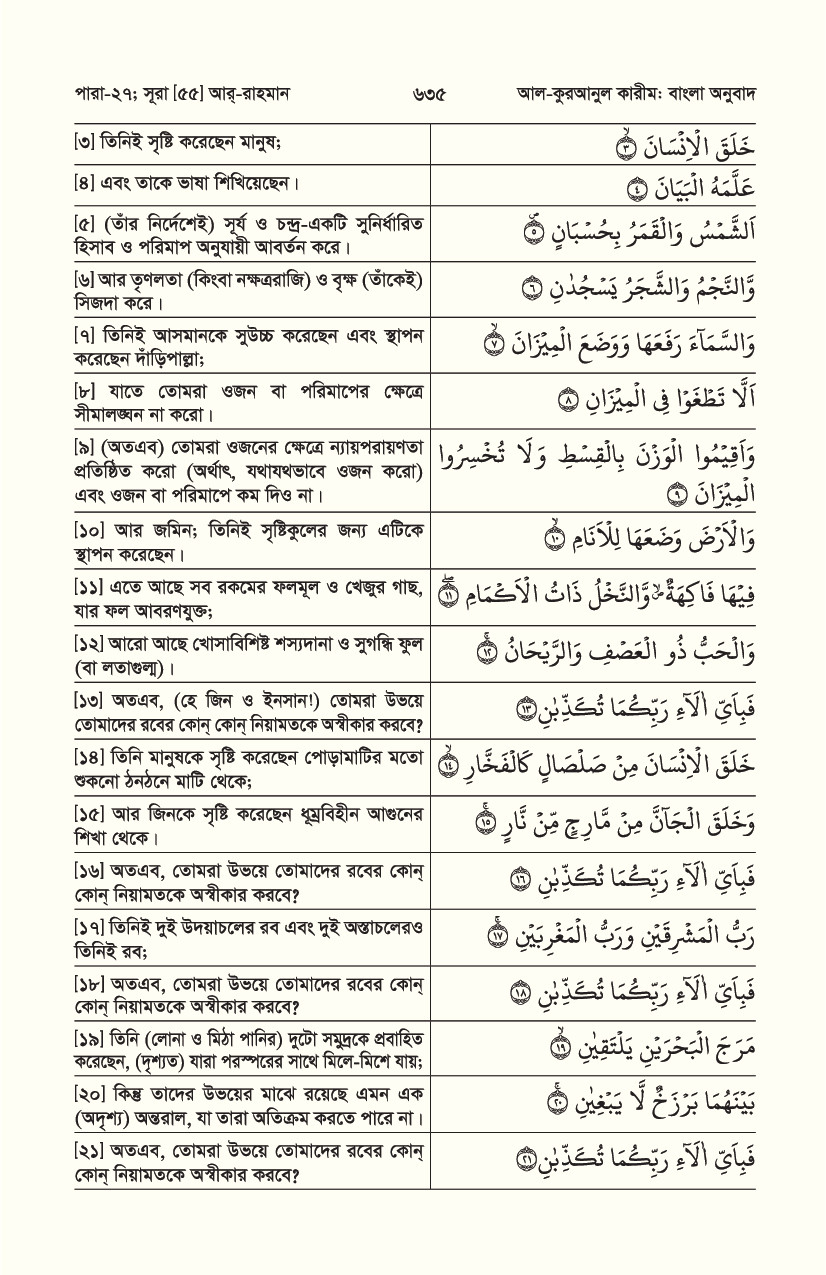 পারা-২৭; সূরা [৫৫] আর্-রাহমান ৬৩৫ আল-কুরআনুল কারীম: বাংলা অনুবাদ
[৩] তিনিই সৃষ্টি করেছেন মানুষ;
خَلَقَ الْاِنْسَانَ ۙ﴿۳﴾
[৪] এবং তাকে ভাষা শিখিয়েছেন।
عَلَّمَهُ الْبَيَانَ ﴿۴﴾
[৫] (তাঁর নির্দেশেই) সূর্য ও চন্দ্র-একটি সুনির্ধারিত
হিসাব ও পরিমাপ অনুযায়ী আবর্তন করে।
اَلشَّمْسُ وَالْقَمَرُ بِحُسْبَانٍ ۪﴿۵﴾
[৬] আর তৃণলতা (কিংবা নক্ষত্ররাজি) ও বৃক্ষ (তাঁকেই)
সিজদা করে।
وَّالنَّجْمُ وَالشَّجَرُ يَسْجُدٰنِ ﴿۶﴾
[৭] তিনিই আসমানকে সুউচ্চ করেছেন এবং স্থাপন
করেছেন দাঁড়িপাল্লা;
وَالسَّمَآءَ رَفَعَهَا وَوَضَعَ الْمِيْزَانَ ۙ﴿۷﴾
[৮] যাতে তোমরা ওজন বা পরিমাপের ক্ষেত্রে
সীমালঙ্ঘন না করো।
اَلَّا تَطْغَوْا فِى الْمِيْزَانِ ﴿۸﴾
[৯] (অতএব) তোমরা ওজনের ক্ষেত্রে ন্যায়পরায়ণতা
প্রতিষ্ঠিত করো (অর্থাৎ, যথাযথভাবে ওজন করো)
এবং ওজন বা পরিমাপে কম দিও না।
وَاَقِيْمُوا الْوَزْنَ بِالْقِسْطِ وَلَا تُخْسِرُوا
الْمِيْزَانَ ﴿۹﴾
[১০] আর জমিন; তিনিই সৃষ্টিকুলের জন্য এটিকে
স্থাপন করেছেন।
وَالْاَرْضَ وَضَعَهَا لِلْاَنَامِ ۙ﴿۱۰﴾
[১১] এতে আছে সব রকমের ফলমূল ও খেজুর গাছ,
যার ফল আবরণযুক্ত;
فِيْهَا فَاكِهَةٌ ۪ۙ وَّالنَّخْلُ ذَاتُ الْاَكْمَامِ ۖ﴿۱۱﴾
[১২] আরো আছে খোসাবিশিষ্ট শস্যদানা ও সুগন্ধি ফুল
(বা লতাগুল্ম)।
وَالْحَبُّ ذُو الْعَصْفِ وَالرَّيْحَانُ ۚ﴿۱۲﴾
[১৩] অতএব, (হে জিন ও ইনসান!) তোমরা উভয়ে
তোমাদের রবের কোন্ কোন্ নিয়ামতকে অস্বীকার করবে?
فَبِاَىِّ اٰلَآءِ رَبِّكُمَا تُكَذِّبٰنِ ﴿۱۳﴾
[১৪] তিনি মানুষকে সৃষ্টি করেছেন পোড়ামাটির মতো
শুকনো ঠনঠনে মাটি থেকে;
خَلَقَ الْاِنْسَانَ مِنْ صَلْصَالٍ كَالْفَخَّارِ ۙ﴿۱۴﴾
[১৫] আর জিনকে সৃষ্টি করেছেন ধূম্রবিহীন আগুনের
শিখা থেকে।
وَخَلَقَ الْجَآنَّ مِنْ مَّارِجٍ مِّنْ نَّارٍ ۚ﴿۱۵﴾
[১৬] অতএব, তোমরা উভয়ে তোমাদের রবের কোন্
কোন্ নিয়ামতকে অস্বীকার করবে?
فَبِاَىِّ اٰلَآءِ رَبِّكُمَا تُكَذِّبٰنِ ﴿۱۶﴾
[১৭] তিনিই দুই উদয়াচলের রব এবং দুই অস্তাচলেরও
তিনিই রব;
رَبُّ الْمَشْرِقَيْنِ وَرَبُّ الْمَغْرِبَيْنِ ۚ﴿۱۷﴾
[১৮] অতএব, তোমরা উভয়ে তোমাদের রবের কোন্
কোন্ নিয়ামতকে অস্বীকার করবে?
فَبِاَىِّ اٰلَآءِ رَبِّكُمَا تُكَذِّبٰنِ ﴿۱۸﴾
[১৯] তিনি (লোনা ও মিঠা পানির) দুটো সমুদ্রকে প্রবাহিত
করেছেন, (দৃশ্যত) যারা পরস্পরের সাথে মিলে-মিশে যায়;
مَرَجَ الْبَحْرَيْنِ يَلْتَقِيٰنِ ۙ﴿۱۹﴾
[২০] কিন্তু তাদের উভয়ের মাঝে রয়েছে এমন এক
(অদৃশ্য) অন্তরাল, যা তারা অতিক্রম করতে পারে না।
بَيْنَهُمَا بَرْزَخٌ لَّا يَبْغِيٰنِ ۚ﴿۲۰﴾
[২১] অতএব, তোমরা উভয়ে তোমাদের রবের কোন্
কোন্ নিয়ামতকে অস্বীকার করবে?
فَبِاَىِّ اٰلَآءِ رَبِّكُمَا تُكَذِّبٰنِ ﴿۲۱﴾